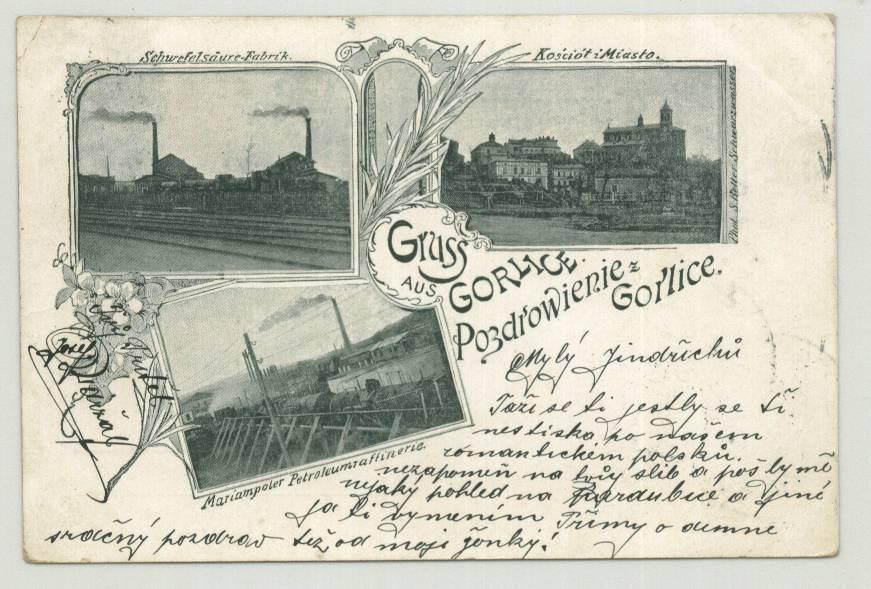 Schwefelsäure-Fabrik.
Kościół i Miasto.
Phot. S. Keller Schwarzwasser
Gruss
AUS GORLICE.
Pozdrowienie z
Gorlice.
Mariampoler Petroleumraffinerie.
Mylý Jindřichů
Taží se ti jestly se ti
nestiska po našem
romantickem polsků.
nezapomeň na tvůj slib a pošly mě
nejaký pohled na Pardubice a jiné
ja ti vymením
srdčný pozdrav též od moji žonky!
Josef